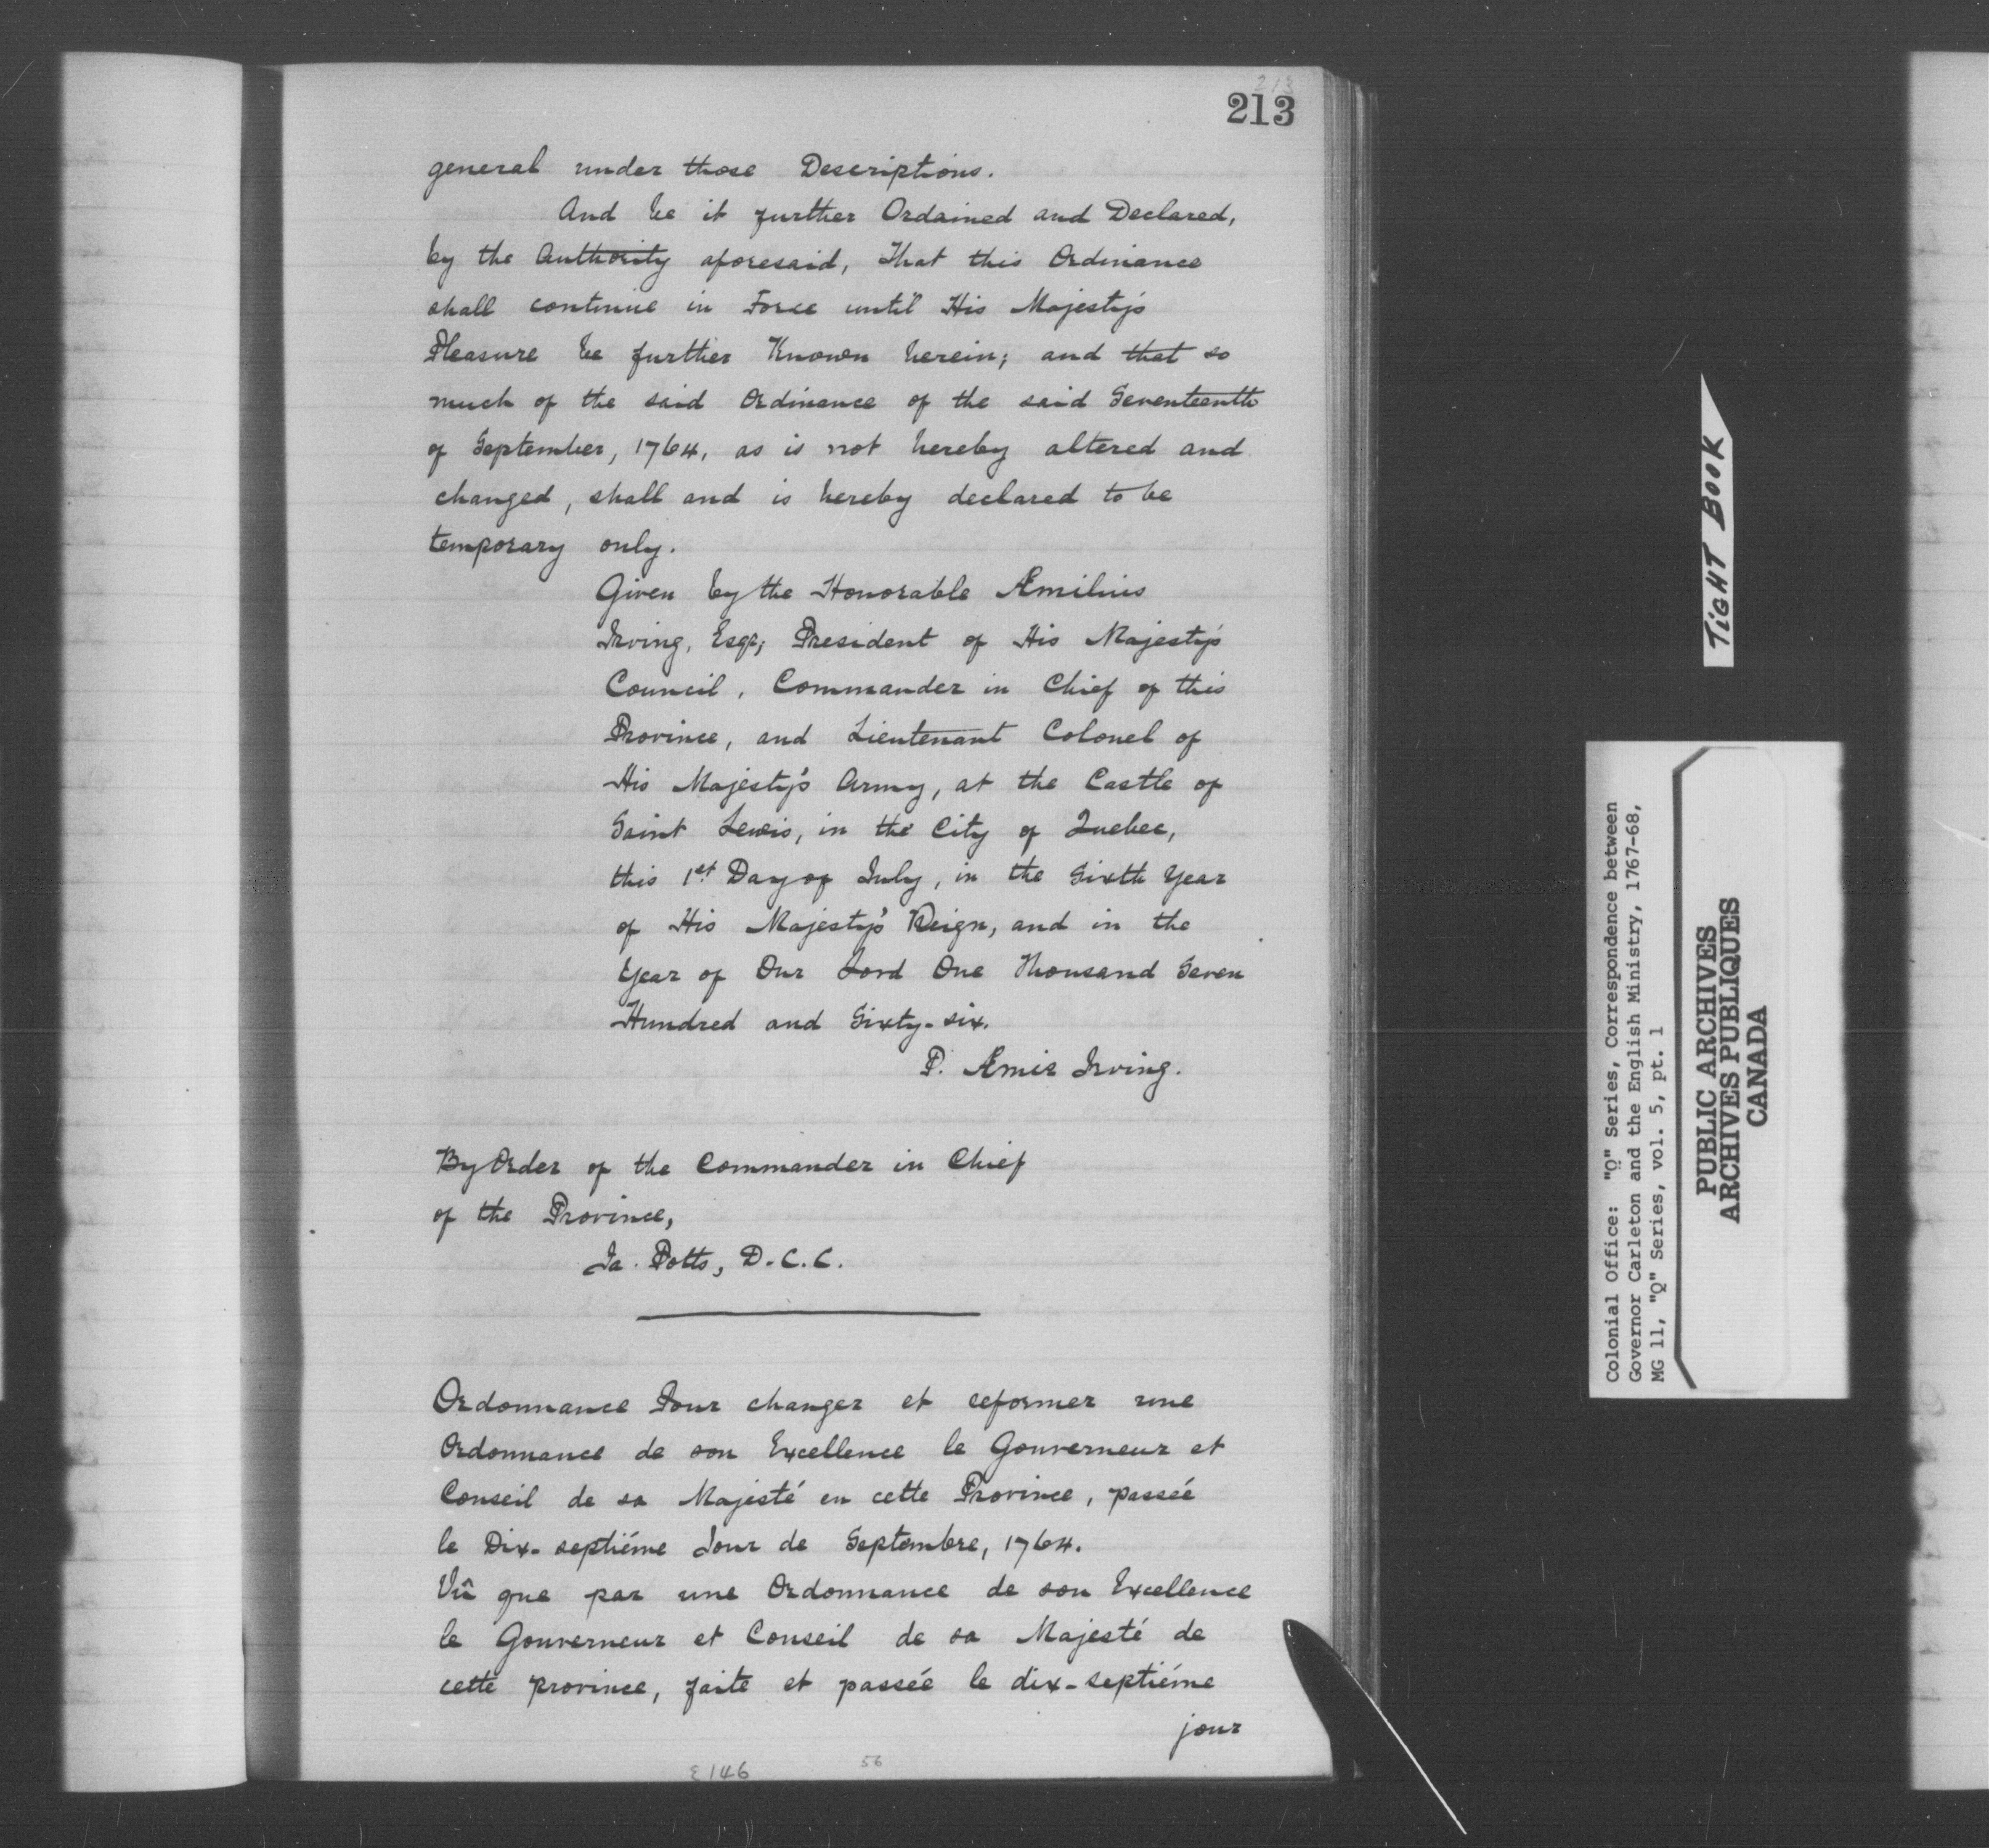 213
213
general under those Descriptions.
And be it further Ordained and Declared,
by the Authority aforesaid, That this Ordinance
shall continue in Force until His Majesty's
Pleasure be further Known herein; and that so
much of the said Ordinance of the said Seventeenth
of September, 1764, as is not hereby altered and
changed, shall and is hereby declared to be
temporary only.
Given by the Honorable Æmilius
Irving, Esqr; President of His Majesty's
Council, Commander in Chief of this
Province, and Lieutenant Colonel of
His Majesty's Army, at the Castle of
Saint Lewis, in the City of Quebec,
this 1st Day of July, in the Sixth Year
of His Majesty's Reign, and in the
Year of Our Lord One Thousand Seven
Hundred and Sixty-six.
P. Æmis Irving.
By Order of the Commander in Chief
of the Province,
Ja. Potts, D.C.C.
Ordonnance Pour changer et reformer une
Ordonnance de son Excellence le Gouverneur et
Conseil de sa Majesté en cette Province, passée
le Dix-septiéme Jour de Septembre, 1764.
Vû que par une Ordonnance de son Excellence
le Gouverneur et Conseil de sa Majesté de
cette province, faite et passée le dix-septiéme
jour
E146
56
TIGHT BOOK
Colonial Office: "Q" Series, Correspondence between
Governor Carleton and the English Ministry, 1767-68,
MG 11, "Q" Series, vol. 5, pt. 1
PUBLIC ARCHIVES
ARCHIVES PUBLIQUES
CANADA